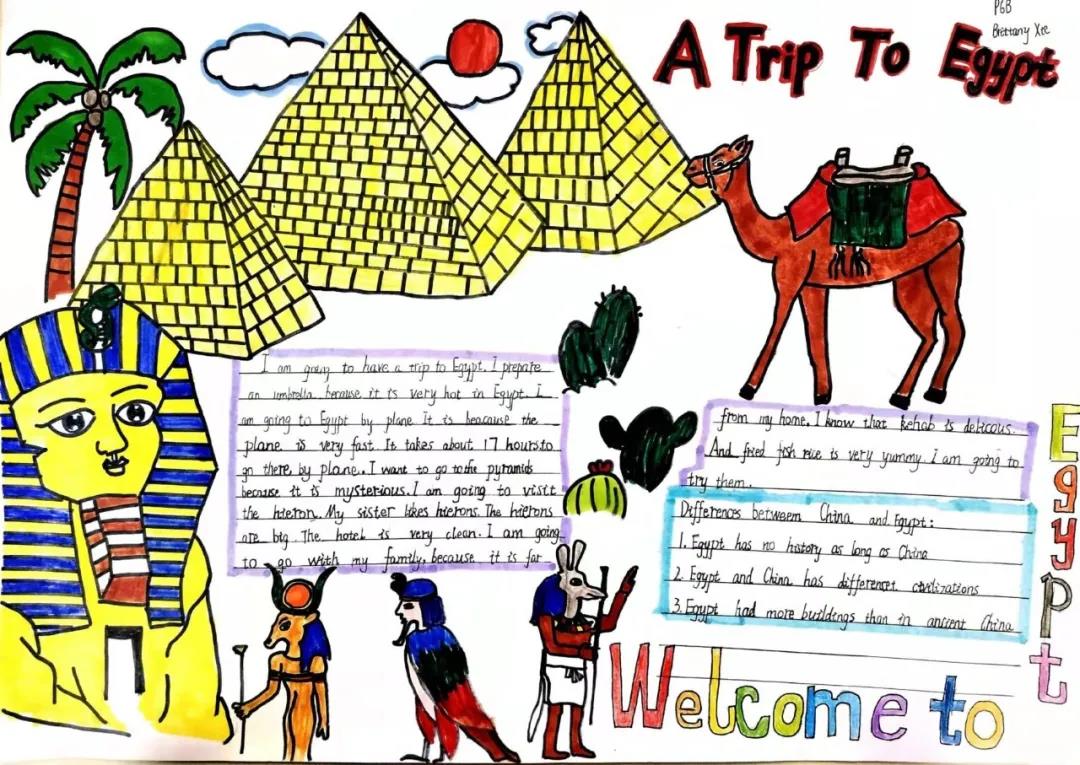 P6B
Brittany Xie
A Trip To Egypt
I am going to have a trip to Egypt. I prepare
an umbrella because it is very hot in Egypt. I
am going to Egypt by plane. It is beacause the
plane is very fast. It takes about 17 hours to
go there by plane. I want to go to the pyramids
because it is mysterious. I am going to visit
the hieron. My sister likes hierons. The hierons
are big. The hotel is very clean. I am going
to go with my family, because it is far
from my home. I know that kebab is delicous.
And fried fish rice is very yummy. I am going to
try them.
Differences between China and Egypt:
1. Egypt has no history as long as China
2. Egypt and China has differencet civilizations
3. Egypt had more buildings than in ancient China
Welcome to
Egypt